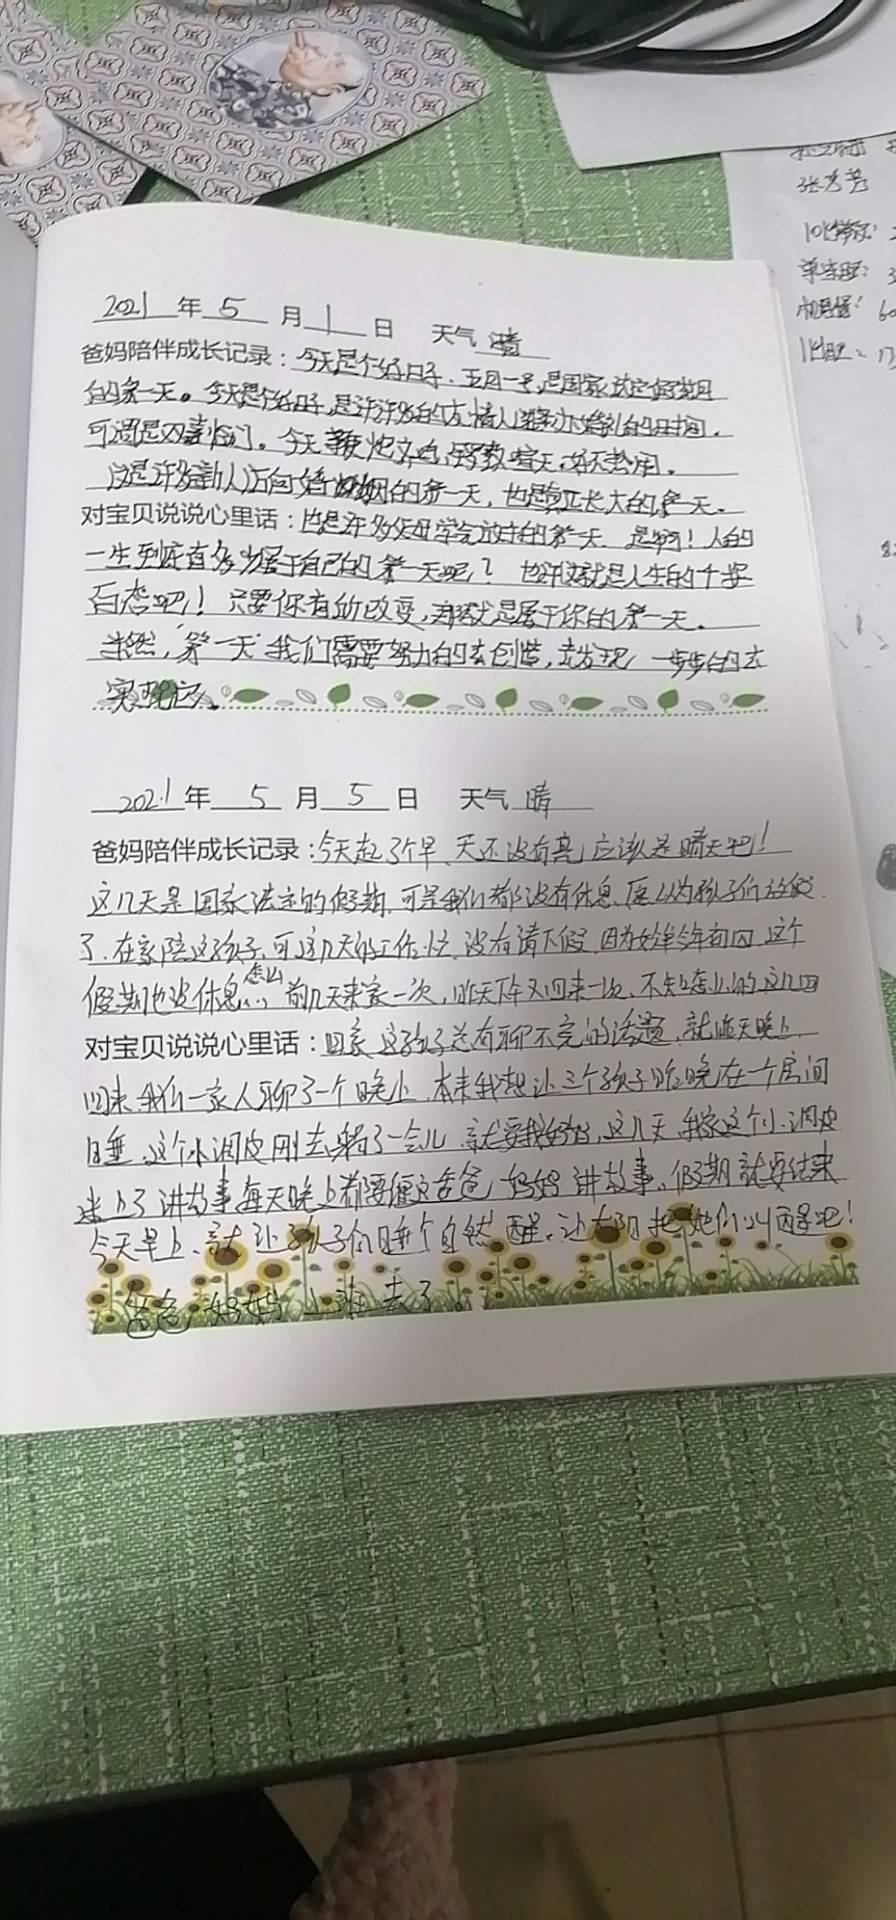 2021年5月1日 天气 晴
爸妈陪伴成长记录：今天是个好日子、五月一号,是国家法定假期
的第一天。今天是个好日子,是许许多多的有情人举办婚礼的日子,
可谓是双喜临门。今天鞭炮齐鸣,锣鼓喧天,好不热闹。
这是许多新人迈向婚姻的第一天，也是真正长大的第一天。
对宝贝说说心里话：也是许多父母学会放手的第一天 是啊！人的
一生到底有多少属于自己的第一天呢？也许这就是人生的十字
百态吧！只要你有所改变,那就是属于你的第一天。
当然，第一天我们需要努力的去创造,去发现 一步步的去
实现它。
2021年 5 月 5 日 天气 晴
爸妈陪伴成长记录：今天起了个早、天还没有亮,应该是晴天吧！
这几天是国家法定的假期,可是我们都没有休息、原以为孩子们放假
了、在家陪这孩子,可这几天的工作忙,没有请下假
假期也没休息 前几天来家一次,昨天下午又回来一次、不知怎么的
对宝贝说说心里话：回家 这孩子总有聊不完的话题,就昨天晚上
回来 我们一家人聊了一个晚上,本来我想让三个孩子昨晚在一个房间
睡、这个小调皮刚去躺了一会儿 就要找妈妈,这几天 我家这个小调皮
迷上了讲故事,每天晚上都要缠这爸爸,妈妈讲故事。假期就要结束
今天早上、就让孩子们睡个自然醒、让太阳把她们叫醒吧！
爸爸,妈妈上班去了。
张芳芳